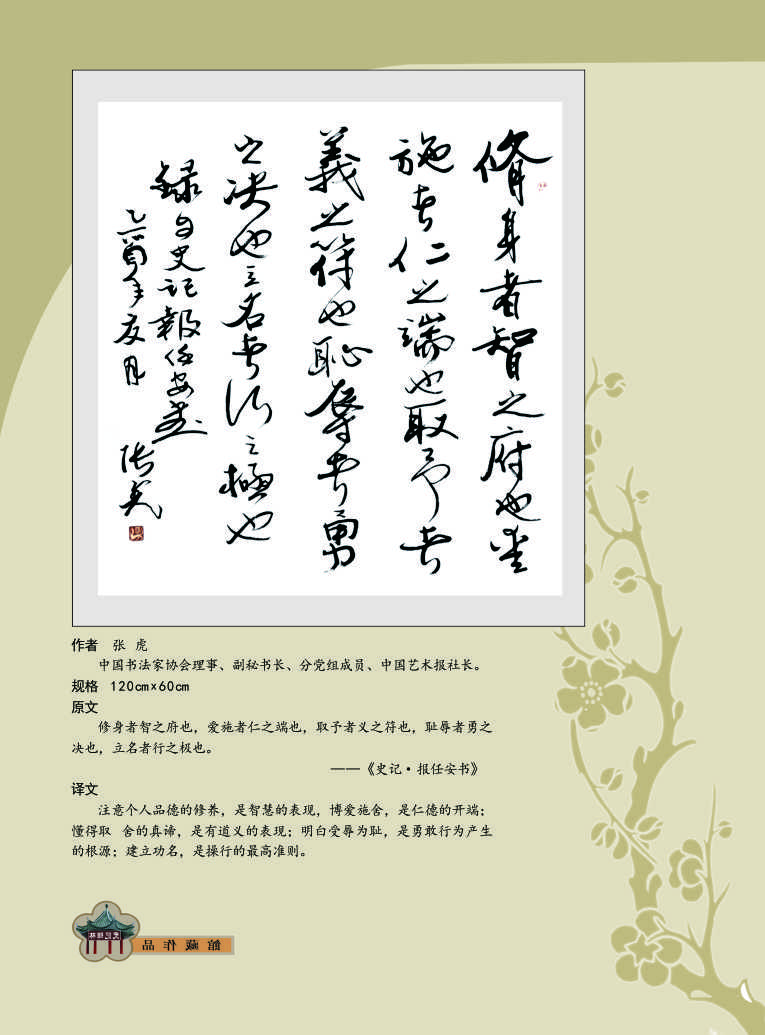 脩身者智之府也愛
施者仁之端也取予者
義之符也恥辱者勇
之决也立名者行之極也
録自史记報任安書
乙酉年月 张虎
作者 张 虎
中国书法家协会理事、副秘书长、分党组成员、中国艺术报社长。
规格 120cm×60cm
原文
修身者智之府也，爱施者仁之端也，取予者义之符也，耻辱者勇之
决也，立名者行之极也。
——《史记·报任安书》
译文
注意个人品德的修养，是智慧的表现，博爱施舍，是仁德的开端；
懂得取 舍的真谛，是有道义的表现；明白受辱为耻，是勇敢行为产生
的根源；建立功名，是操行的最高准则。
館藏作品